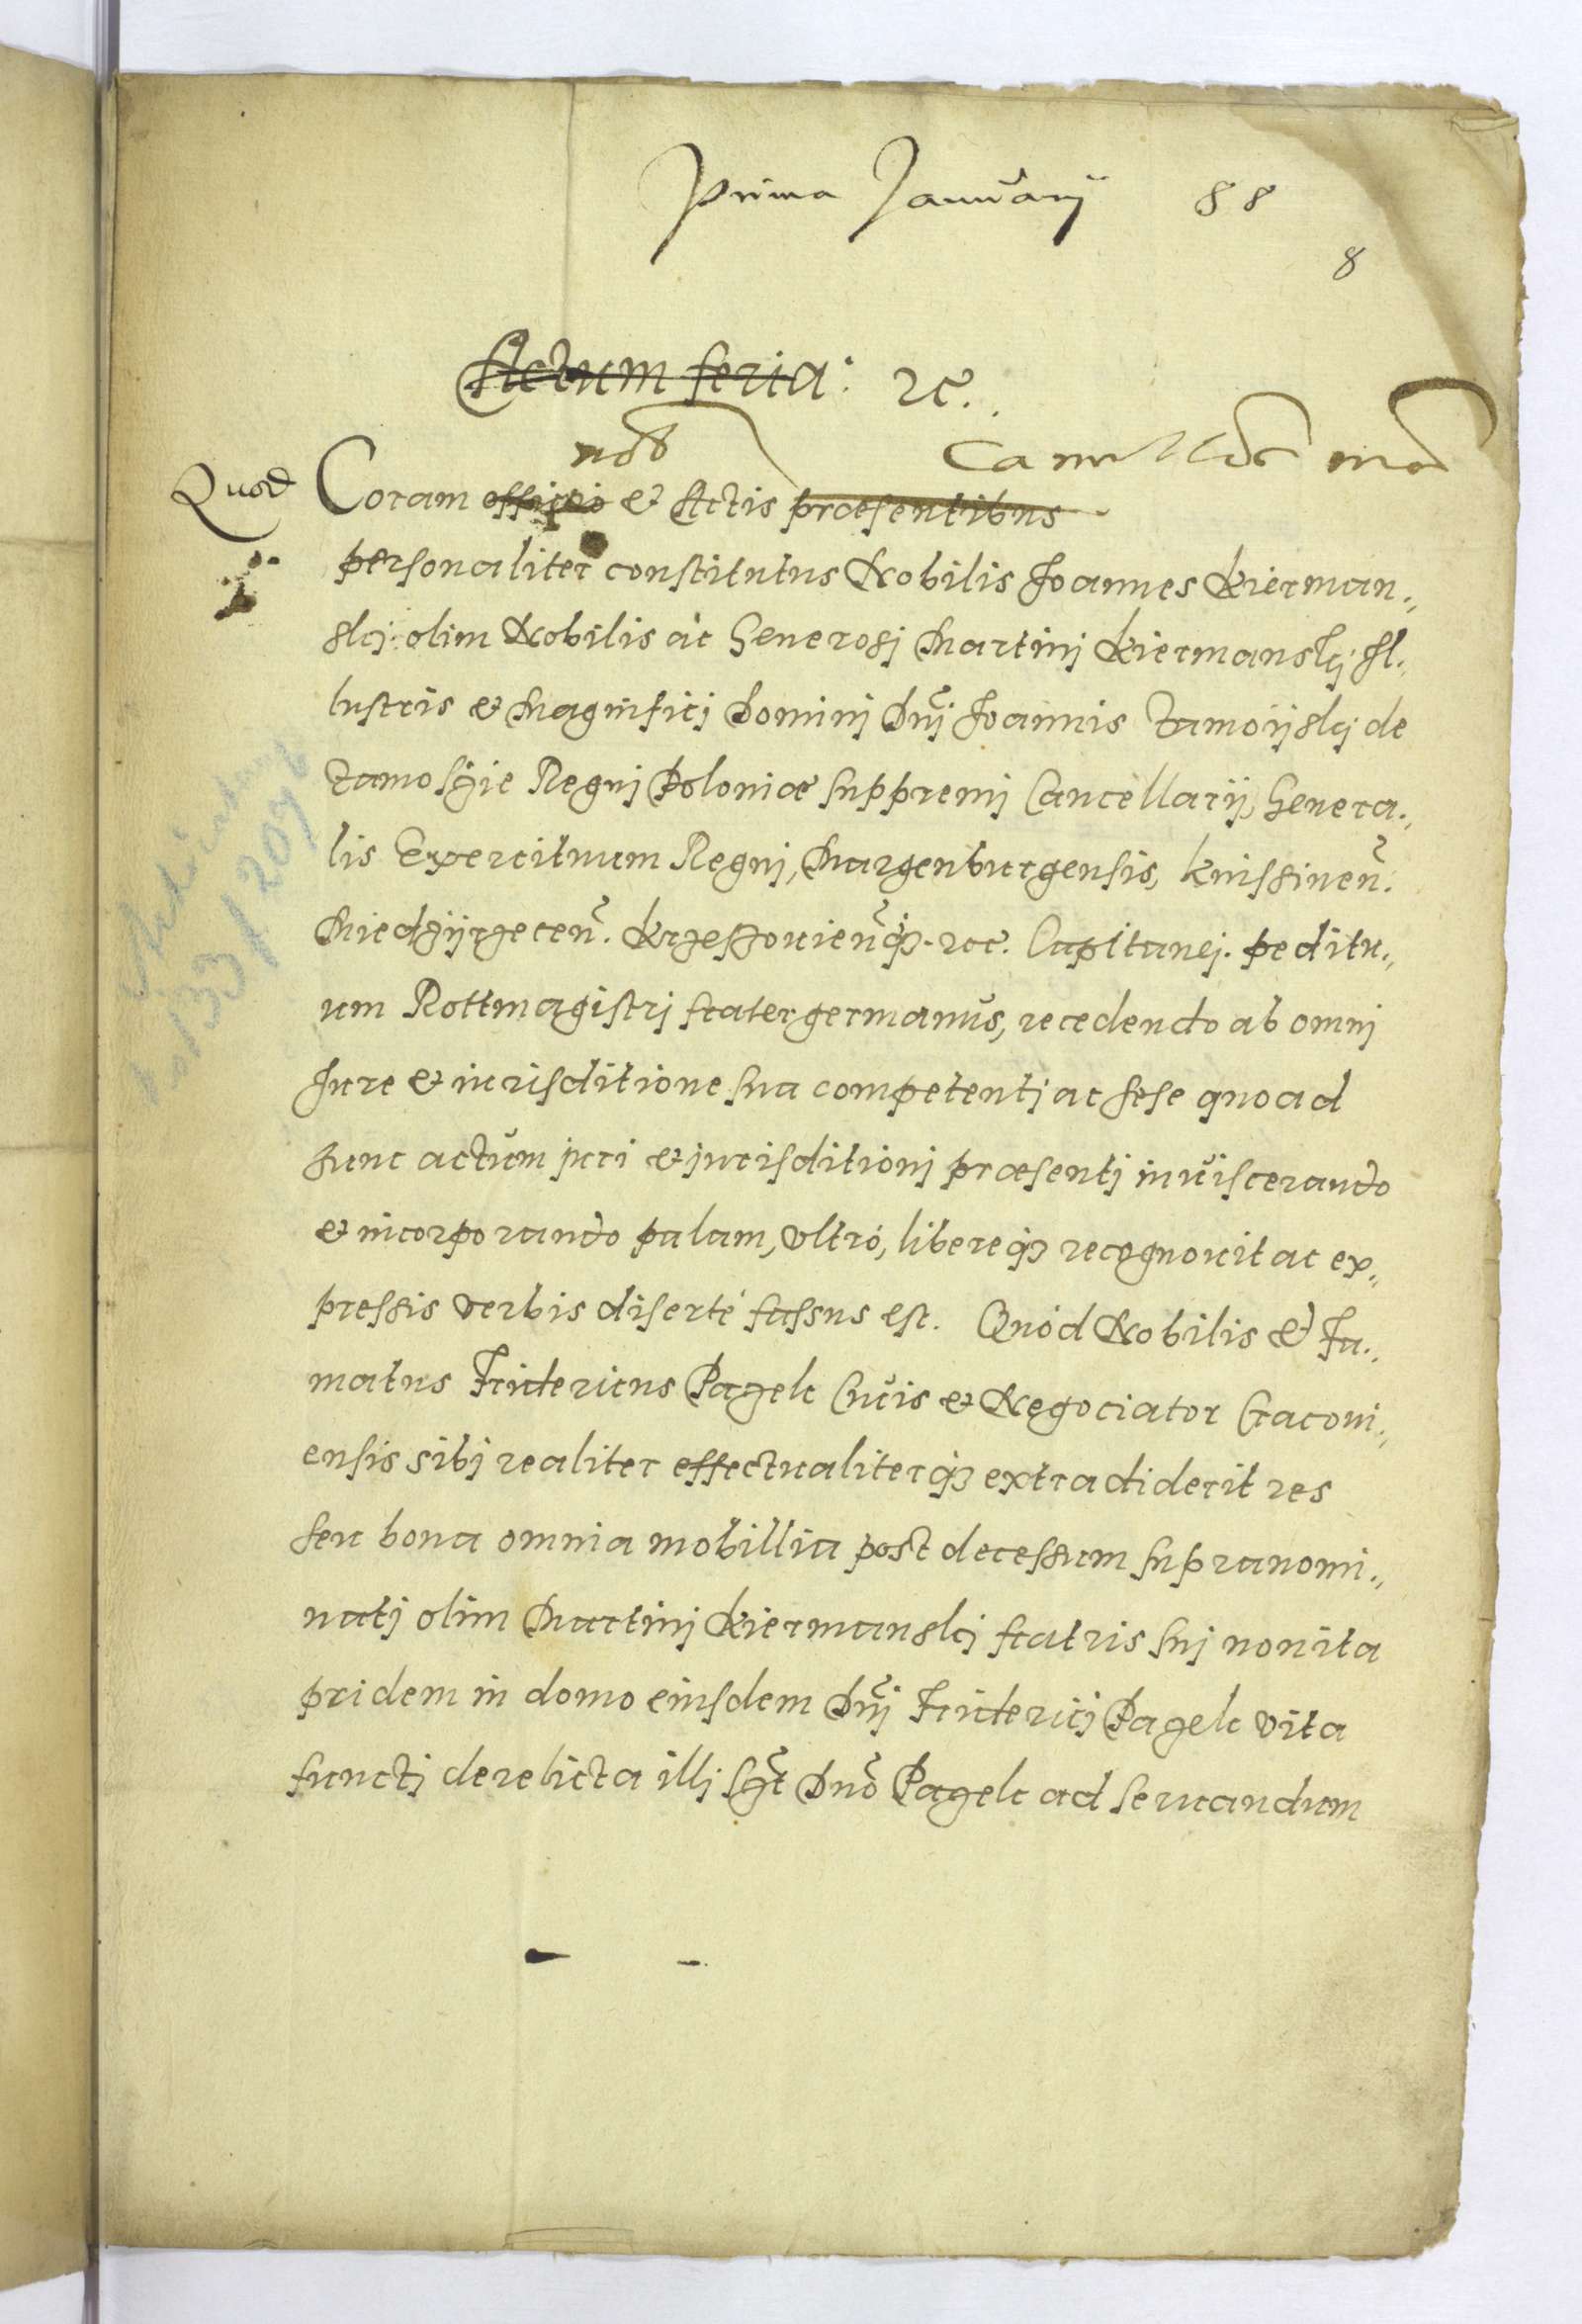 Prima Januarij 88
8
Actum feria: &c.
nob
Quod Coram officio & Actis præsentibus
personaliter constitutus Nobilis Joannes Kierman„
skj olim Nobilis ac Generosj Martinj Kiermanskj Jl„
lustris & Magnificj Dominj Dnj Joannis Zamoijskj de
Zamosczie Regnj Poloniæ suppremj Cancellarij, Genera„
lis Exercituum Regnj, Margenburgensis, Knissinen.
Miedzijrzecen. Krzessouien q3 &c. Capitanej. peditu„
um Rottmagistrj frater germanus, recedendo ab omnj
Jure & iurisditione sua competentj ac sese quoad
hunc actum juri & jurisditionj præsentj inviscerando
& incorporando palam, vltró, libereq3 recognouit ac ex„
pressis verbis diserté fassus est. Quód Nobilis & Fa„
matus Fridericus Pazelt Civis & Negociator Cracoui„
ensis sibj realiter effectualiterq3 extradiderit res
seu bona omnia mobillia post decessum supranomi„
natj olim Martinj Kiermanskj fratris suj non ita
pridem in domo eiusdem Dnj Friderici Pazelt vita
functj derelicta illj Dno Pazelt ad seruandum